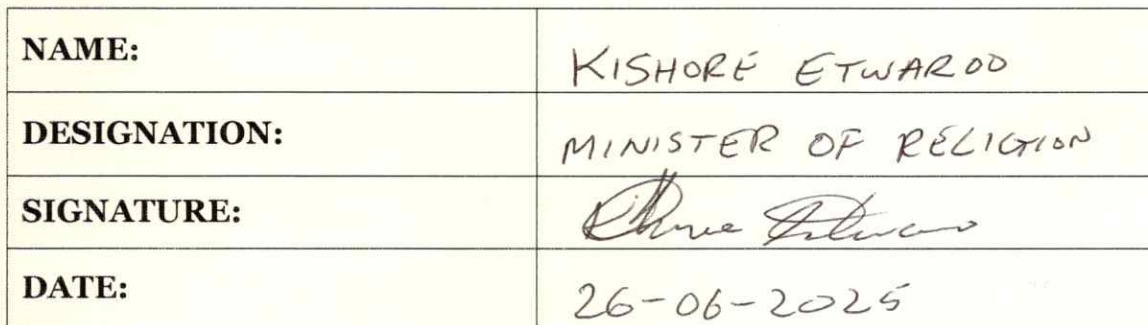 NAME: KISHORE ETWAROO
DESIGNATION: MINISTER OF RELIGION
SIGNATURE:
DATE: 26-06-2025